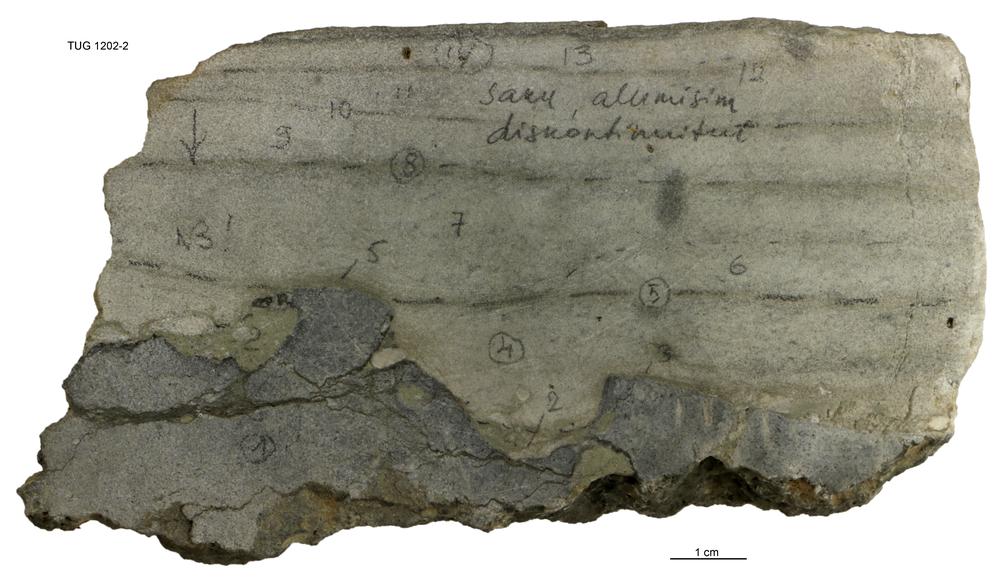 TUG 1202-2
14 13
12
11
10
9
sarn. allmisim
diskontinuiteet
8
7
NB!
5
6
5
4
3
2
2
1
1 cm